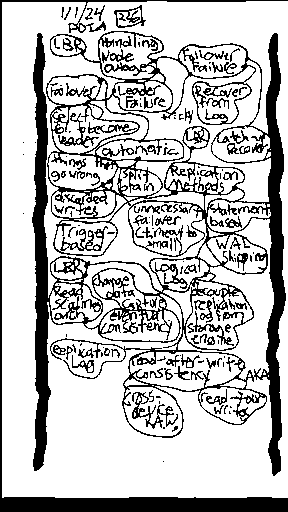 1/1/24
DDIA
LBR
Handling
Node
Outages
Follower
Failure
Failover
Leader
Failure
Recover
from
Log
Select
for become
leader
tricky
automatic
LBR
Catch-up
Recovery
things that
go wrong
split
brain
Replication
Methods
discarded
writes
unnecessary
failover
small
Statement
based
Trigger-
based
WAL
Shipping
LBR
Change
data
capture
Logical
Log
Read
Scaling
over
eventual
Consistency
decouple
replication
log from
storage
engine
Replication
Log
read-after-write
Consistency
AKA
cross-
device
RAW
read-your-
writes